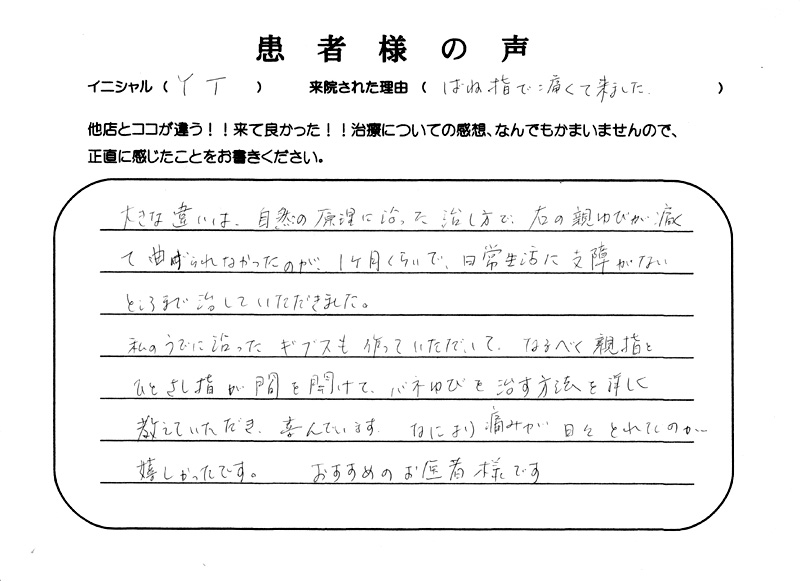 患者様の声
イニシャル（ＹＴ）　来院された理由（ばね指で痛くて来ました。）
他店とココが違う！！来て良かった！！治療についての感想、なんでもかまいませんので、
正直に感じたことをお書きください。
大きな違いは、自然の原理に沿った治し方で、右の親ゆびが痛く
て曲げられなかったのが、1ヶ月くらいで、日常生活に支障がない
ところまで治していただきました。
私のうでに沿ったギブスも作っていただいて、なるべく親指と
ひとさし指が間を開けて、バネゆびを治す方法を詳しく
教えていただき、喜んでいます。なにより痛みが日々とれてくのが
嬉しかったです。　おすすめのお医者様です